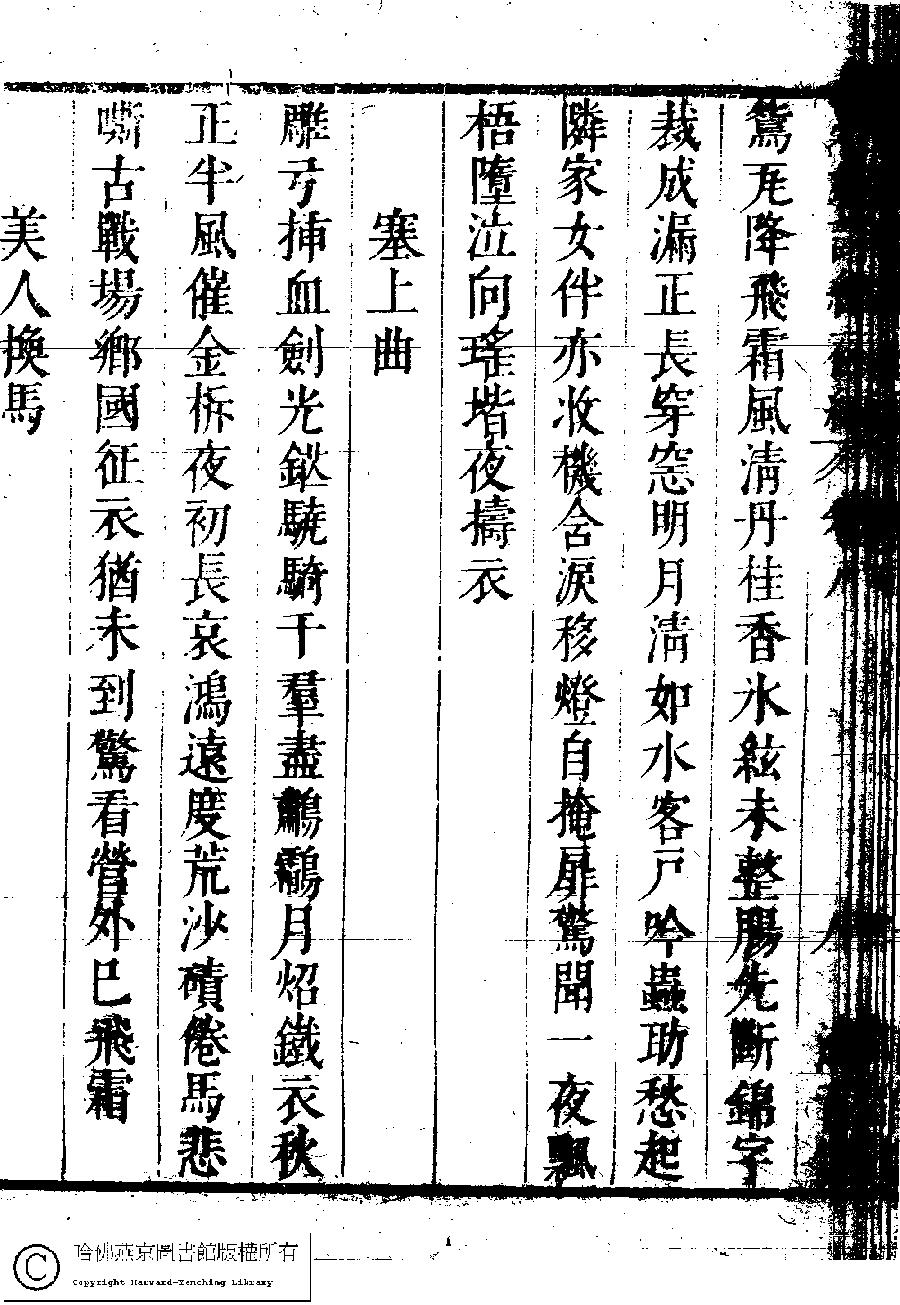 鴛瓦降飛霜風淸丹桂香氷絃未整腸先斷錦字
裁成漏正長穿窓明月淸如水客戶吟蟲助愁起
隣家女伴亦收機含淚移燈自掩扉驚聞一夜飄
梧墮泣向瑤堦夜擣衣
塞上曲
雕弓揷血劍光鈥驍騎千羣盡鷫鸘月炤鐵衣秋
正半風催金柝夜初長哀鴻遠度荒沙磧倦馬悲
嘶古戰場鄉國征衣猶未到驚看營外巳飛霜
美人換馬
哈佛燕京圖書館版權所有
Copyright Harvard-Yenching Library